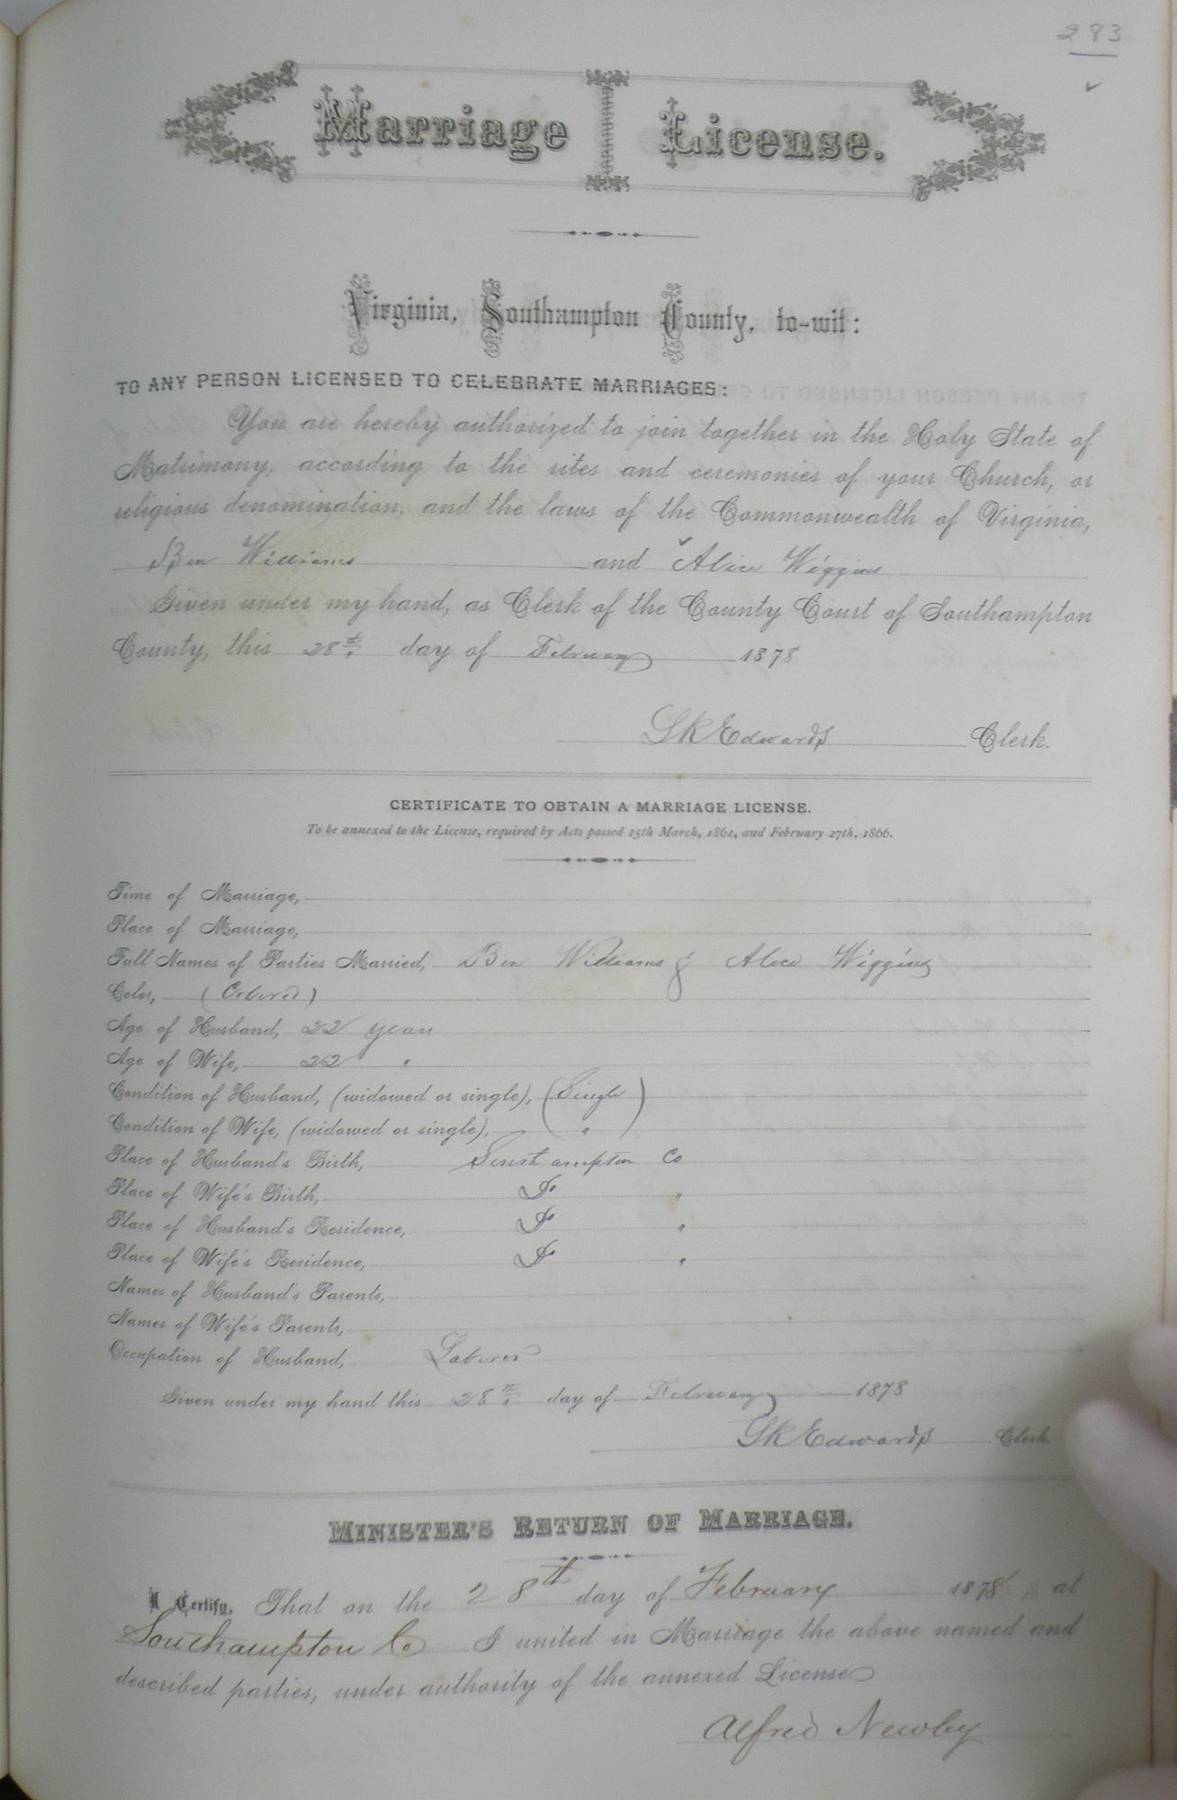 283
Marriage License.
Virginia, Southampton County, to-wit:
TO ANY PERSON LICENSED TO CELEBRATE MARRIAGES:
You are hereby authorized to join together in the Holy State of
Matrimony, according to the rites and ceremonies of your Church, or
religious denomination, and the laws of the Commonwealth of Virginia,
Ben Williams and Alice Wiggins
Given under my hand, as Clerk of the County Court of Southampton
County, this 28th day of February 1878
L R Edwards Clerk.
CERTIFICATE TO OBTAIN A MARRIAGE LICENSE.
To be annexed to the License, required by Acts passed 15th March, 1861, and February 27th, 1866.
Time of Marriage,
Place of Marriage,
Full Names of Parties Married, Ben Williams & Alice Wiggins
Color, (Colored)
Age of Husband, 22 years
Age of Wife, 22 "
Condition of Husband, (widowed or single), (Single)
Condition of Wife, (widowed or single), "
Place of Husband's Birth, Southampton Co
Place of Wife's Birth, "
Place of Husband's Residence, "
Place of Wife's Residence, "
Names of Husband's Parents,
Names of Wife's Parents,
Occupation of Husband, Laborer
Given under my hand this 28th day of February 1878
L R Edwards Clerk
MINISTER'S RETURN OF MARRIAGE.
I Certify, That on the 28th day of February 1878, at
Southampton Co I united in Marriage the above named and
described parties, under authority of the annexed License
Alfred Newby